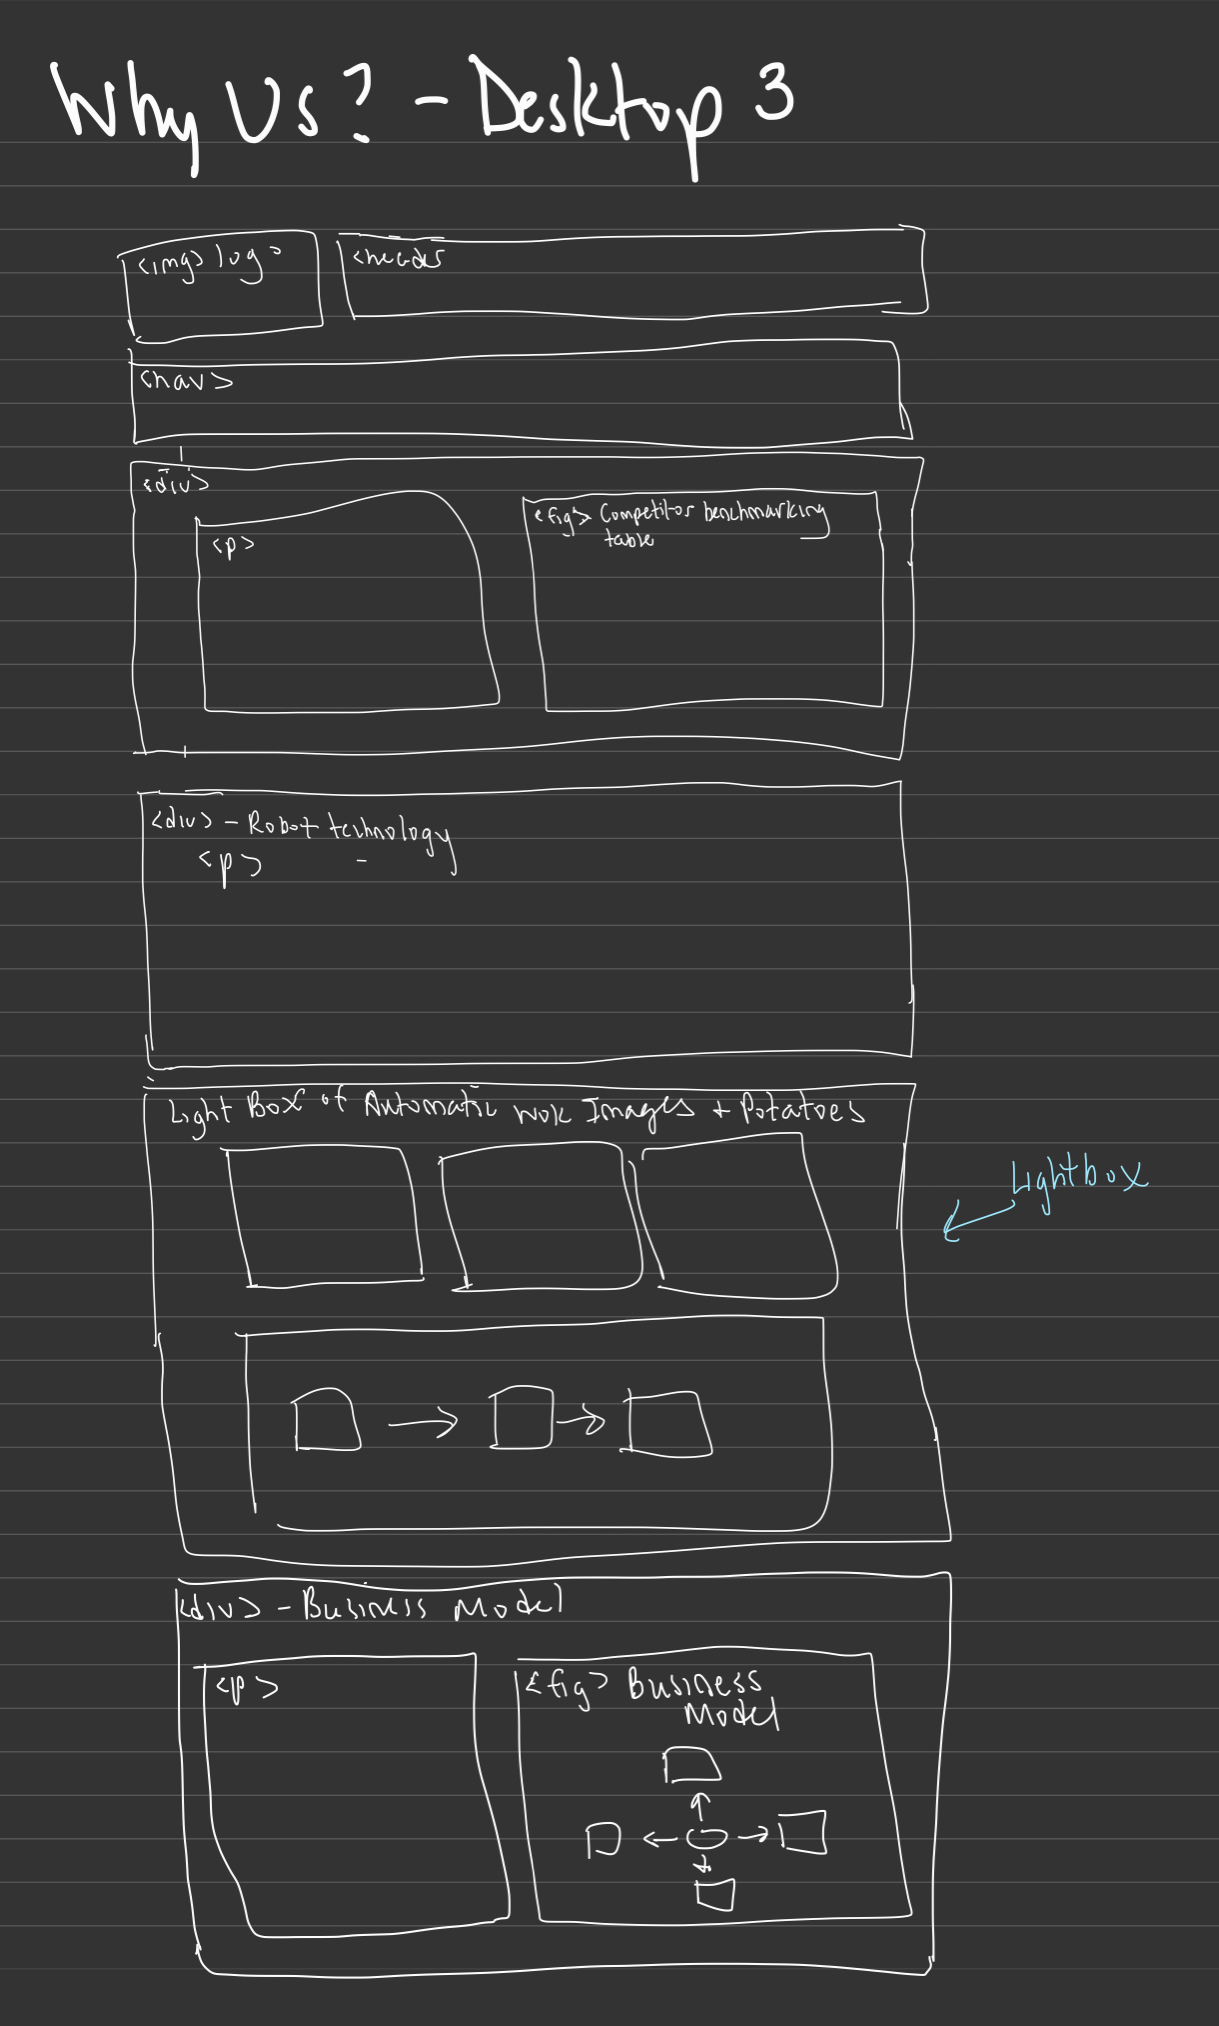 Why Us? - Desktop 3
<img> logo
<header
<nav>
<div>
<p>
<fig> Competitor benchmarking
table
<div> - Robot technology
<p> -
Light Box of Automatic Wok Images + Potatoes
Lightbox
<div> - Business Model
<p>
<fig> Business
Model